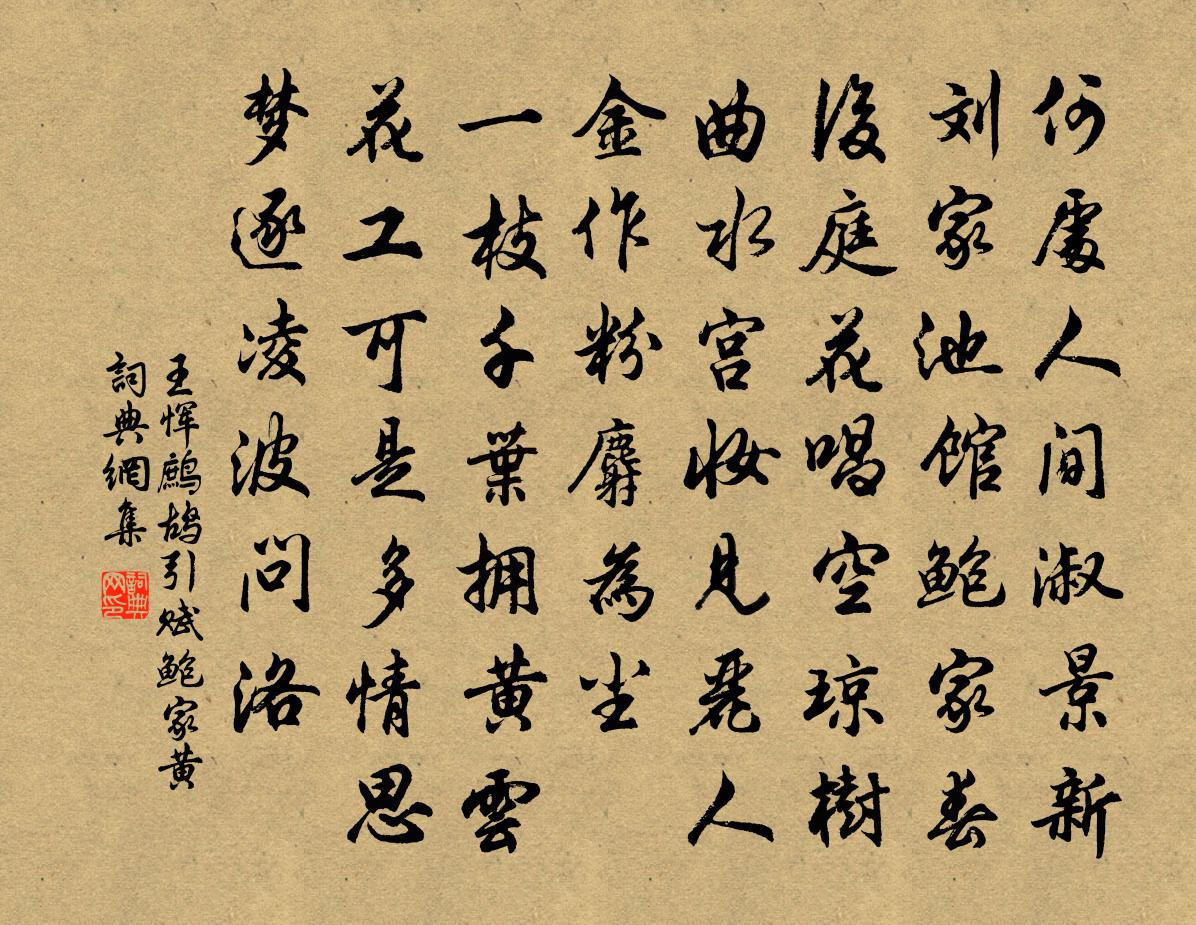 何處人间淑景新
刘家池馆鲍家春
後庭花唱空琼樹
曲水宫妆見麗人
金作粉麝為尘
一枝千葉拥黄雲
花工可是多情思
梦逐凌波问洛
王恽鹧鸪引赋鲍家黄
詞典網集
詞典网印